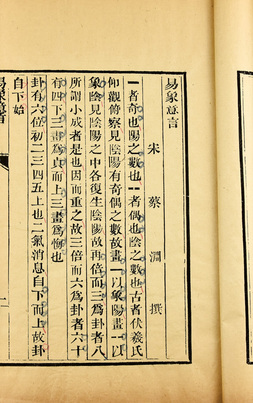 易象意言
宋蔡淵撰
一者奇也陽之數也--者偶也陰之數也古者伏羲氏
仰觀俯察見陰陽有奇偶之數故畫一以象陽畫--以
象陰見陰陽之中各復生陰陽故再倍而三爲卦者八
所謂小成者是也因而重之故三倍而六爲卦者六十
有四下三畫爲貞而上三畫爲悔也
卦有六位初二三四五上也二氣消息自下而上故卦
自下始
易象意言
一